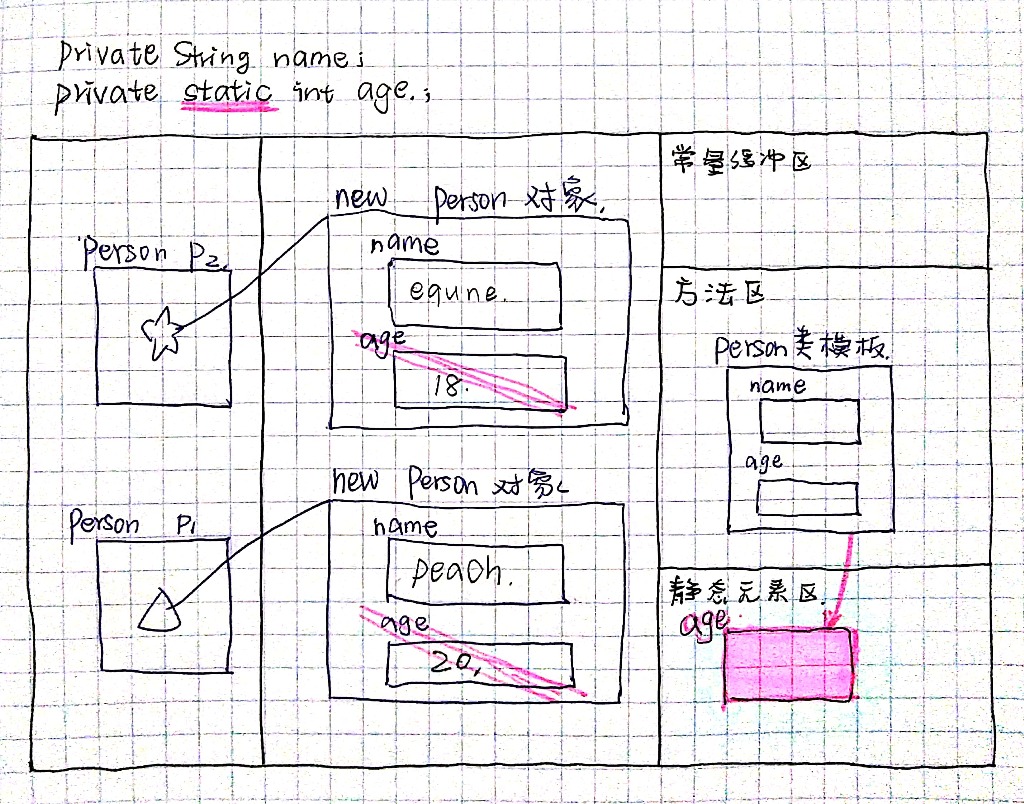 private String name;
private static int age.;
Person P2.
new Person 对象.
name
equne.
age
18.
Person P1
new Person 对象
name
peach.
age
20.
常量缓冲区
方法区
Person类模板.
name
age
静态元素区.
age